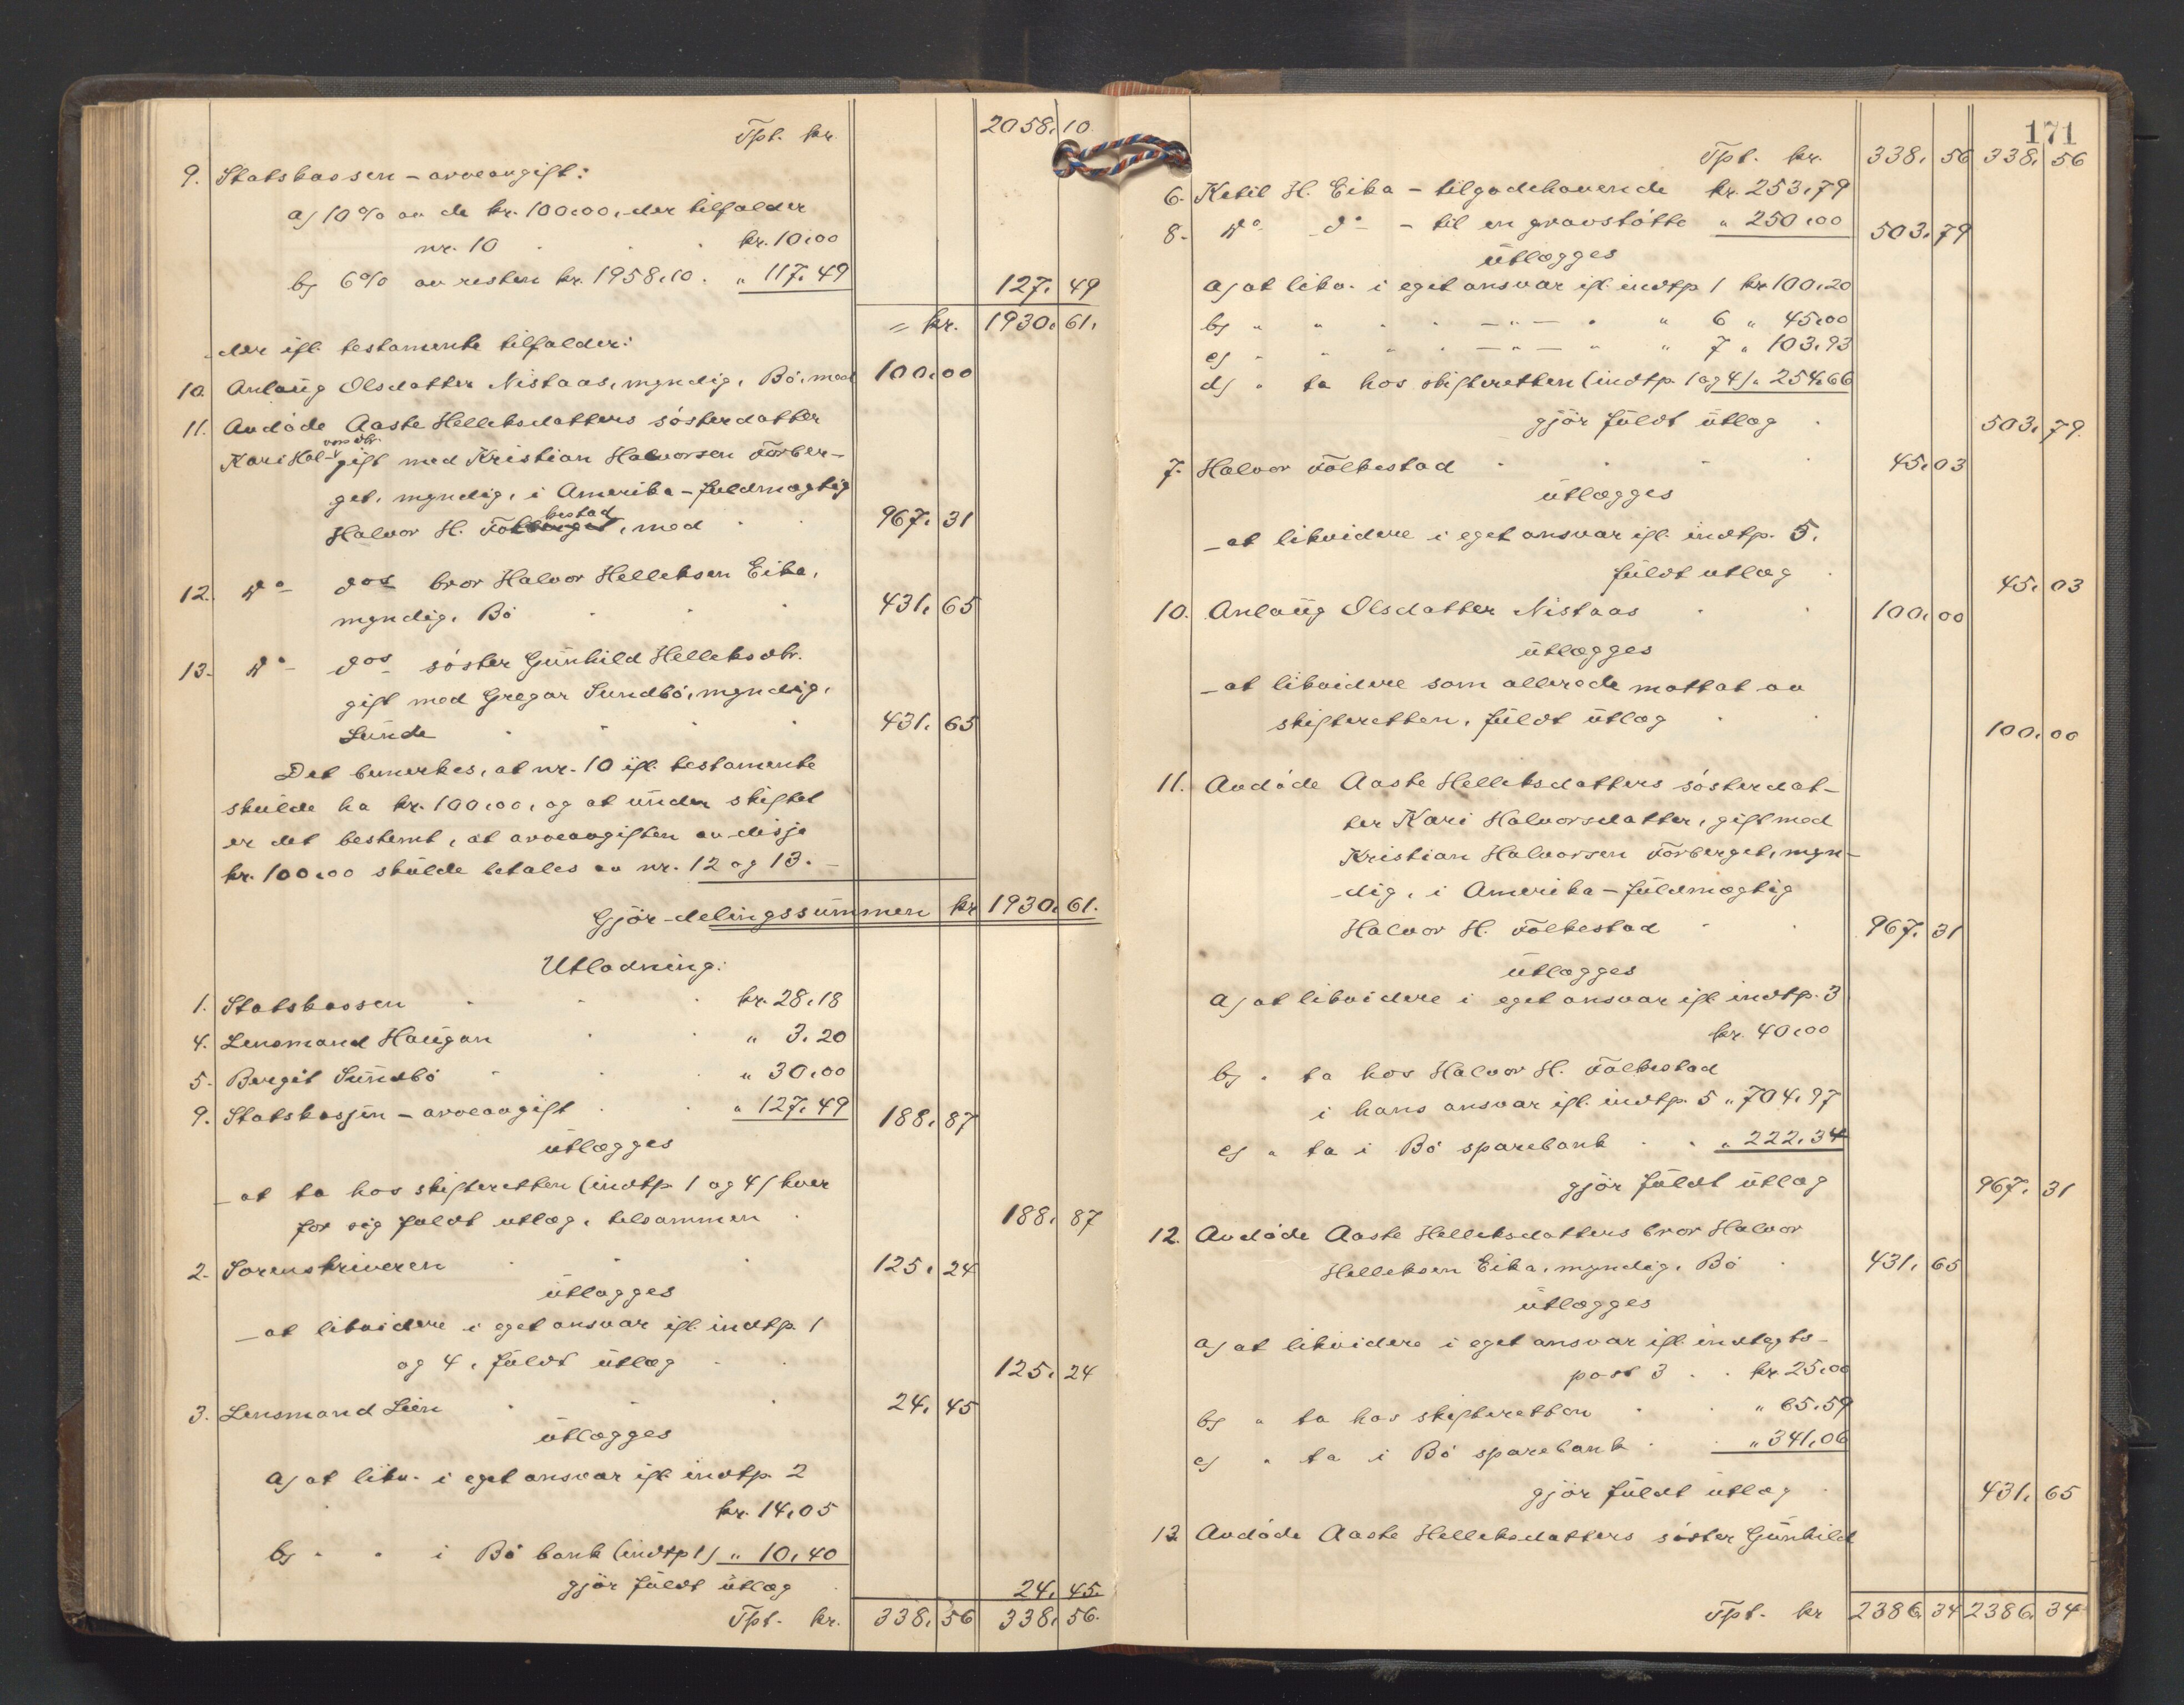 Tpt. kr. 2058,10.
9. Statskassen – arveavgift:
a) 10 % av de kr. 100,00, der tilfalder
nr. 10 . . kr. 10,00
b) 6 % av resten kr. 1958,10 . " 117,49 127,49
= kr. 1930,61.
der ifl. testamente tilfalder:
10. Anlaug Olsdatter Nistaas, myndig, Bø, med 100,00
11. Avdøde Aaste Helleksdatters søsterdatter
Kari Hal-vorsdtr. gift med Kristian Halvorsen Forber-
get, myndig, i Amerika – fuldmægtig
Halvor H. Folkestad, med . . 967,31
12. Do dos bror Halvor Helleksen Eika,
myndig, Bø . . . 431,65
13. Do dos søster Gunhild Helleksdtr.
gift med Gregar Sundbø, myndig,
Lunde . . . 431,65
Det bemerkes, at nr. 10 ifl. testamente
skulde ha kr. 100,00, og at under skiftet
er det bestemt, at arveavgiften av disse
kr. 100,00 skulde betales av nr. 12 og 13. –
Gjør delingssummen kr 1930,61.
Utlodning:
1. Statskassen . . . kr. 28,18
4. Lensmand Haugan . . " 3,20
5. Bergit Sundbø . . " 30,00
9. Statskassen – arveavgift . . " 127,49 188,87
utlægges
– at ta hos skifteretten (indtp. 1 og 4) hver
for sig fuldt utlæg, tilsammen . 188,87
2. Sorenskriveren . . . 125,24
utlægges
– at likvidere i eget ansvar ifl. indtp. 1
og 4, fuldt utlæg . . 125,24
3. Lensmand Lien . . . 24,45
utlægges
a) at likv. i eget ansvar ifl. indtp. 2
kr. 14,05
b) " " i Bø bank (indtp 1) " 10,40
gjør fuldt utlæg . 24,45.
Tpt. kr. 338,56 338,56.
171
Tpt. kr. 338,56 338,56
6. Ketil H. Eika – tilgodehavende kr. 253,79
8. Do do – til en gravstøtte " 250,00 503,79
utlægges
a) at likv. i eget ansvar ifl. indtp 1 kr 100,20
b) " " " " – " – " " 6 " 45,00
c) " " " " – " – " " 7 " 103,93
d) " ta hos skifteretten (indtp. 1 og 4) " 254,66
gjør fuldt utlæg . 503,79.
7. Halvor Folkestad . . . 45,03
utlægges
– at likvidere i eget ansvar ifl. indtp. 5,
fuldt utlæg . 45,03
10. Anlaug Olsdatter Nistaas . . 100,00
utlægges
– at likvidere som allerede mottat av
skifteretten, fuldt utlæg . . 100,00
11. Avdøde Aaste Helleksdatters søsterdat-
ter Kari Halvorsdatter, gift med
Kristian Halvorsen Forberget, myn-
dig, i Amerika – fuldmægtig
Halvor H. Folkestad . . 967,31
utlægges
a) at likvidere i eget ansvar ifl. indtp. 3
kr. 40,00
b) " ta hos Halvor H. Folkestad
i hans ansvar ifl. indtp. 5 " 704,97
c) " ta i Bø sparebank . . " 222,34
gjør fuldt utlæg 967,31
12. Avdøde Aaste Helleksdatters bror Halvor
Helleksen Eika, myndig, Bø . 431,65
utlægges
a) at likvidere i eget ansvar ifl. indtægts-
post 3 . . kr. 25,00
b) " ta hos skifteretten . . " 65,59
c) " ta i Bø sparebank . . " 341,06
gjør fuldt utlæg . 431,65
13 Avdøde Aaste Helleksdatters søster Gunhild
Tpt. kr 2386,34 2386,34